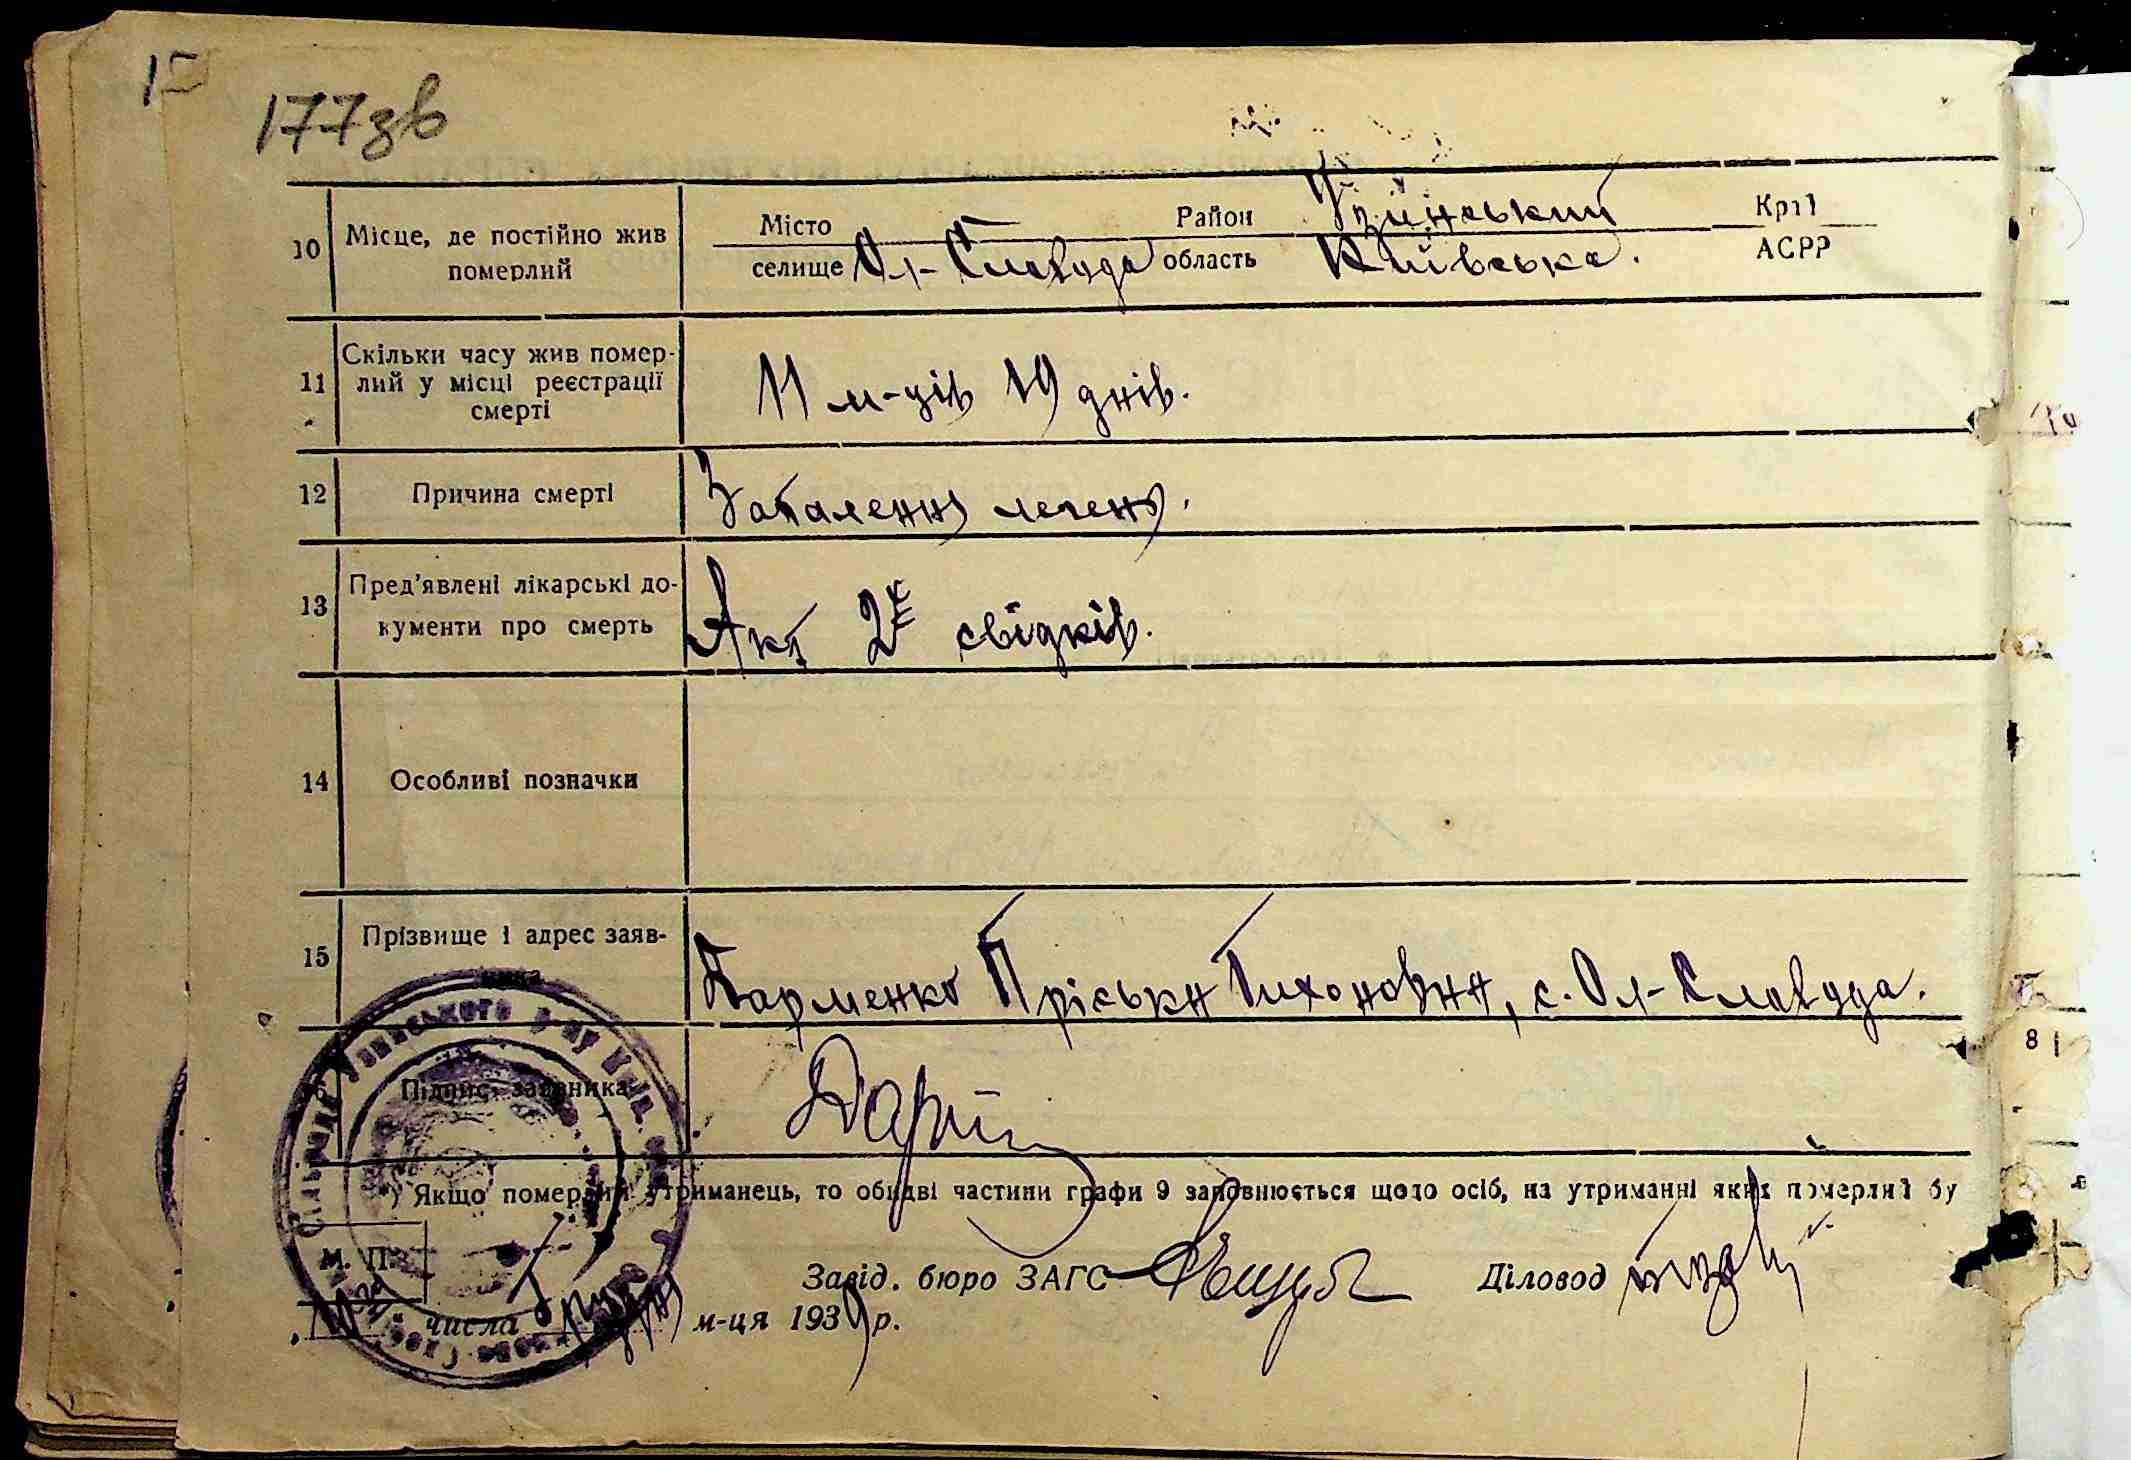 177 зв
10 Місце, де постійно жив померлий
Місто Район Узинський Край
селище Ол-Слабода область Київська. АСРР
11 Скільки часу жив помер-
лий у місці реєстрації
смерті
11 м-ців 19 днів.
12 Причина смерті Запалення легень.
13 Пред'явлені лікарські до-
кументи про смерть
Акт 2х свідків.
14 Особливі позначки
15 Прізвище і адрес заяв-
ника
Парменко Пріська Тихоновна, с. Ол-Слабода.
Підпис заявника
*) Якщо померлий утриманець, то обидві частини графи 9 заповнюється щодо осіб, на утриманні яких померлий бу
М. П.
Завід. бюро ЗАГС Діловод
числа м-ця 1939 р.